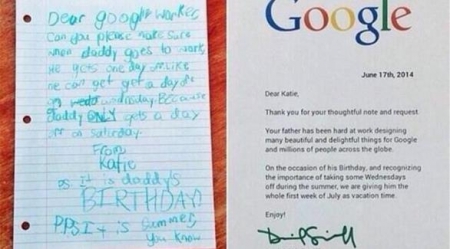 Dear google worker,
Can you please make sure
when daddy goes to work,
He gets one day off. Like
he can get a day off
on wednesday. Because
daddy ONLY gets a day
off on saturday.
From
Katie
Ps It is daddy's
BIRTHDAY
PPS It is Summer,
you know
Google
June 17th, 2014
Dear Katie,
Thank you for your thoughtful note and request.
Your father has been hard at work designing
many beautiful and delightful things for Google
and millions of people across the globe.
On the occasion of his Birthday, and recognizing
the importance of taking some Wednesdays
off during the summer, we are giving him the
whole first week of July as vacation time.
Enjoy!